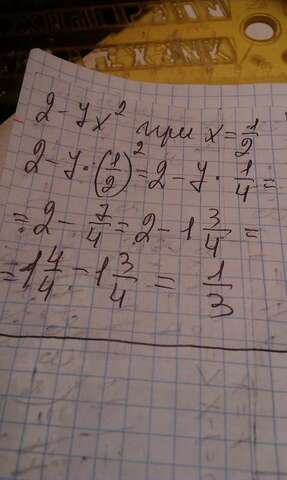 2 - y x² при x = 1/2
2 - y · (1/2)² = 2 - y · 1/4 =
= 2 - 7/4 = 2 - 1 3/4 =
= 1 4/4 - 1 3/4 = 1/3